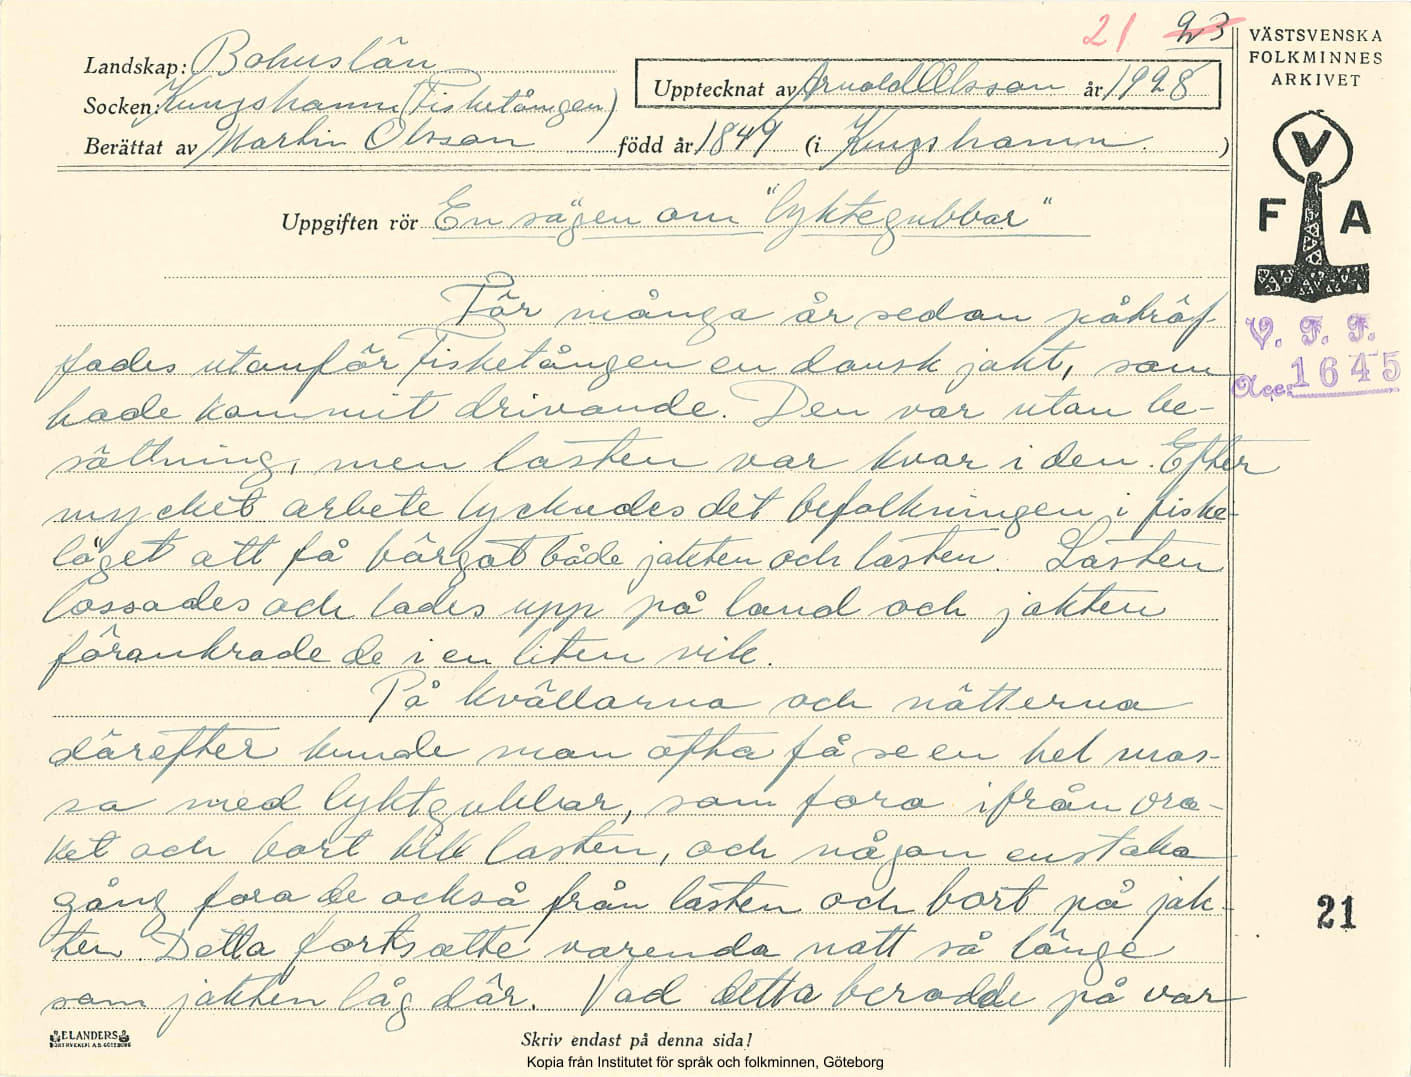 21 23
VÄSTSVENSKA
FOLKMINNES
ARKIVET
Landskap: Bohuslän
Upptecknat av Arnold Olsson år 1928
Socken: Kungshamn (Fisketången)
Berättat av Martin Olsson född år 1849 (i Kungshamn.)
V
F A
Uppgiften rör En sägen om "lyktegubbar"
V. F. F.
Acc: 1645
För många år sedan påträf-
fades utanför Fisketången en dansk jakt, som
hade kommit drivande. Den var utan be-
sättning, men lasten var kvar i den. Efter
mycket arbete lyckades det befolkningen i fiske-
läget att få bärgat både jakten och lasten. Lasten
lossades och lades upp på land och jakten
förankrade de i en liten vik.
På kvällarna och nätterna
därefter kunde man ofta få se en hel mas-
sa med lyktgubbar, som foro ifrån vra-
ket och bort till lasten, och någon enstaka
gång foro de också från lasten och bort på jak-
ten. Detta fortsatte varenda natt så länge
som jakten låg där. Vad detta berodde på var
21
ELANDERS
BOKTRYCKERI A.B. GÖTEBORG
Skriv endast på denna sida!
Kopia från Institutet för språk och folkminnen, Göteborg